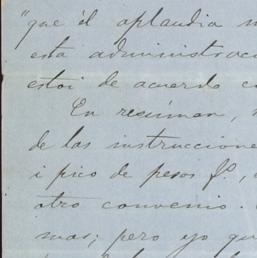 "que él aplaudia m
esta administraci
estoi de acuerdo c
En resúmen,
de las instruccione
i pico de pesos f.º,
otro convenio.
mas; pero yo qu